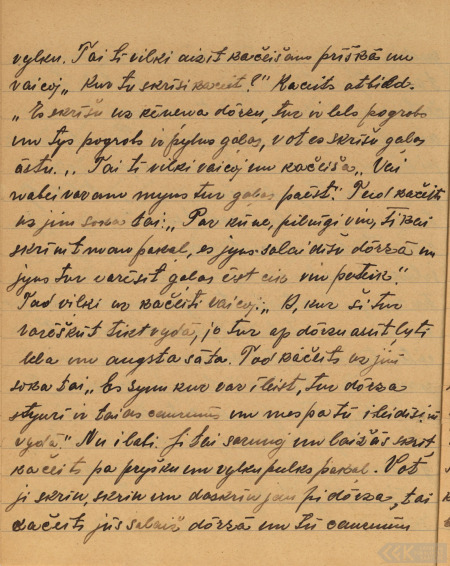 vylku. Tai ti vilki aizit kačeišam priškā un
vaicoj „Kur tu skrisi kačeit?" Kaceits atbild.
„Es skrišu uz kēneņa dōrzu, tur ir lels pogrobs
un tys pogrobs ir pylns gaļas, vot es skrišu gaļas
ēstu." Tai ti vilki vaicoj nu kačeiša „Vai
navei varams myms tur gaļas paēst." Tod kačeits
uz jim soka tai: „Par kū ne, pilnigi var, ti kai
skrinit nu man pakaļ, es jyus salaidišu dōrzā un
jyus tur varēsit gaļas ēst cik un patiks."
Tod vilki uz kačeiti vaicoj: „A, kur ši tur
varēškūt tikt vydā, jo tur ap dōrzu asūt ļyti
lela un augsta sāta. Tod kačeits uz jim
soka tai „Es zynu kur var ileist, tur dōrza
styuri ir taids caurums un mes pa tū ileidisim
vydā." Nu i labi. Ji tai sarunoj un laižās skrit
kačeits pa prišku un vylku pulks pakaļ. Vot
ji skrin, skrin un daskrin jau pi dōrza, tai
kačeits jūs salaiž dōrzā un tū caurumu